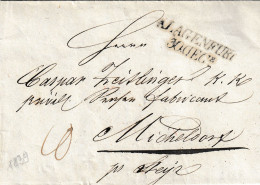 KLAGENFURT
30 DEC.
Herrn
Caspar Zeitlinger k. k.
Sensen Fabricant
Micheldorf
pr Steyr
1829